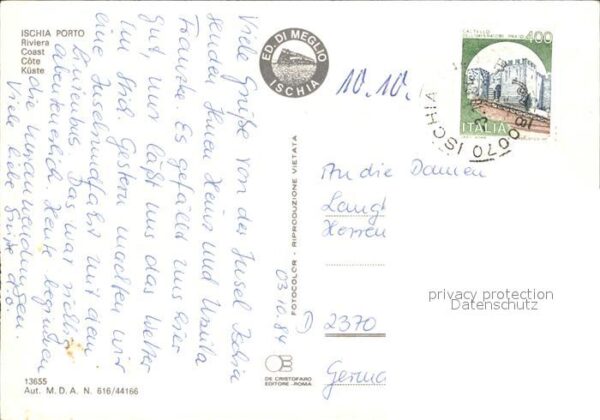 ISCHIA PORTO
Riviera
Coast
Côte
Küste
ED. DI MEGLIO
ISCHIA
10.10.
400
ITALIA
80070 ISCHIA
Viele Grüße von der Insel Ischia
senden Ihnen Heinz und Ursula
Es gefällt uns hier
gut, nur läßt uns das Wetter
im Stich. Gestern machten wir
eine Inselrundfahrt mit dem
Linienbus. Das war richtig
abenteuerlich. Heute beginnen
die
Viele liebe Grüße
d.o.
03.10.84
FOTOCOLOR - RIPRODUZIONE VIETATA
An die Damen
Langt
Herren
D 2370
Germa
privacy protection
Datenschutz
DE CRISTOFARO
EDITORE - ROMA
13655
Aut. M. D. A. N. 616/44166